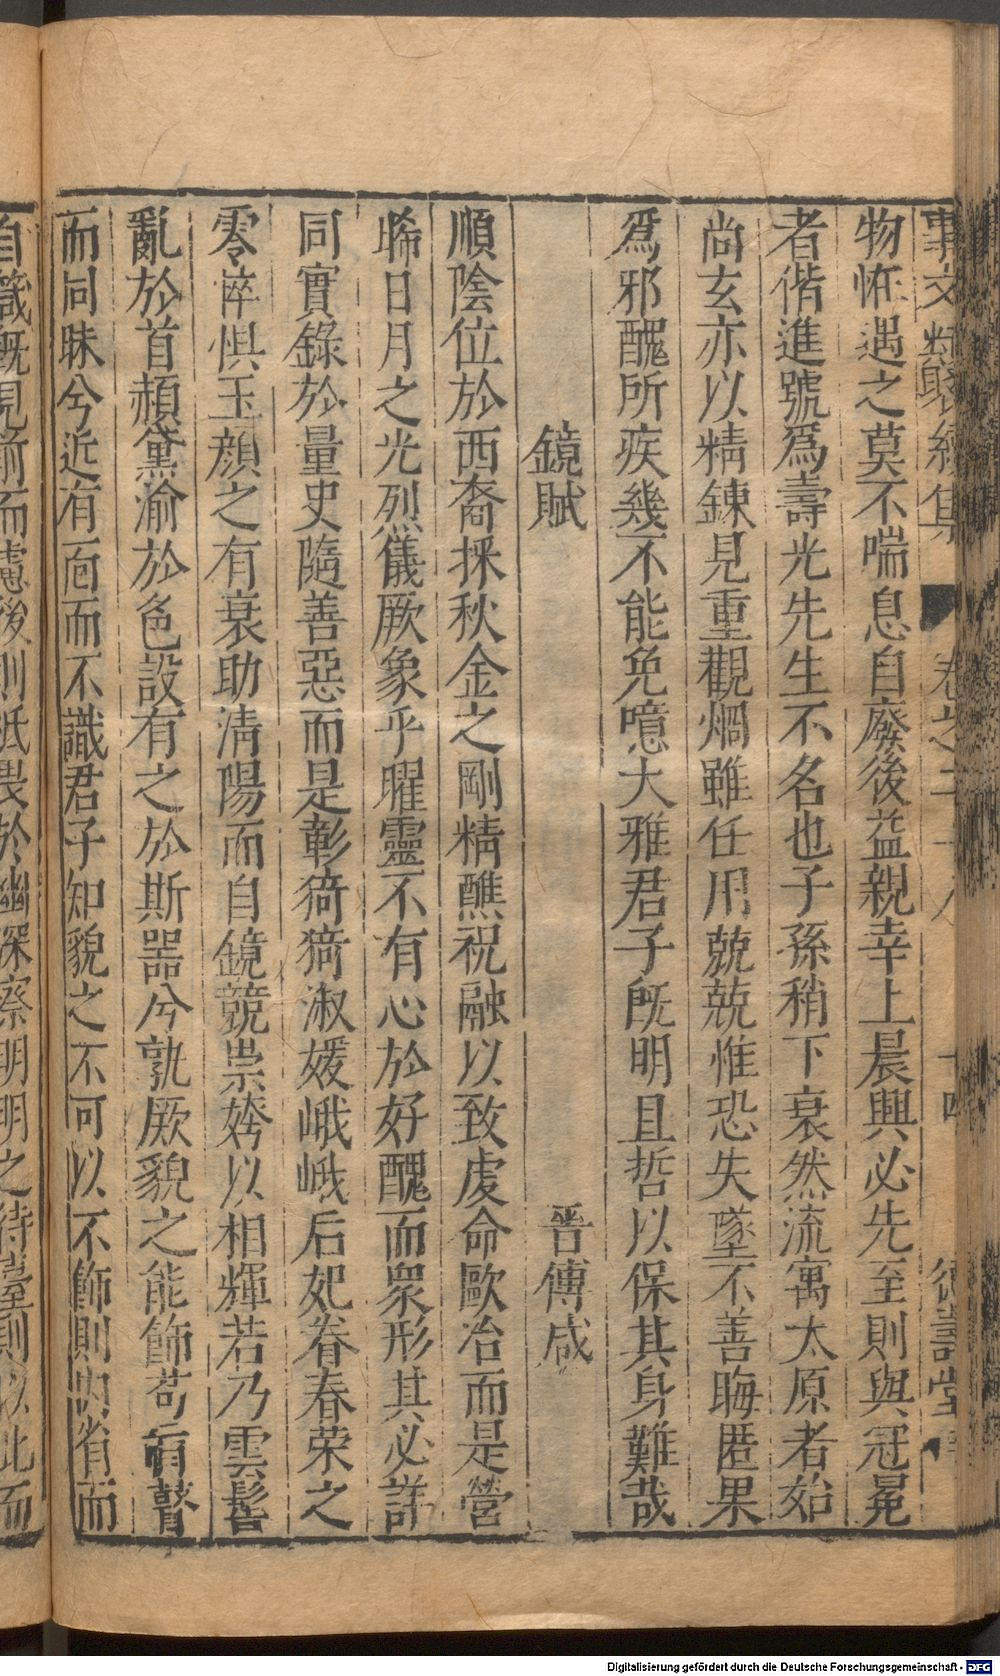 事文類聚續集 卷之二十八 十四 德壽堂梓
物恠遇之莫不喘息自廢後益親幸上晨興必先至則與冠冕
者偕進號爲壽光先生不名也子孫稍下衰然流寓太原者始
尚玄亦以精鍊見重觀烱雖任用兢兢惟恐失墜不善晦匿果
爲邪醜所疾幾不能免噫大雅君子旣明且哲以保其身難哉
鏡賦 晉傅咸
順陰位於西裔採秋金之剛精醮祝融以致虔命歐冶而是營
睎日月之光烈儀厥象乎曜靈不有心於好醜而衆形其必詳
同實錄於量史隨善惡而是彰猗猗淑媛峨峨后妃眷春荣之
零悴惧玉顔之有衰助清陽而自鏡競崇姱以相輝若乃雲髻
亂於首頳黛渝於色設有之於斯噐兮孰厥貌之能飾苟有瞽
而同昧兮近有面而不識君子知貌之不可以不飾則内省而
自箴旣見前而慮後則祗畏於幽深察明明之待瑩則以此而
Digitalisierung gefördert durch die Deutsche Forschungsgemeinschaft - DFG